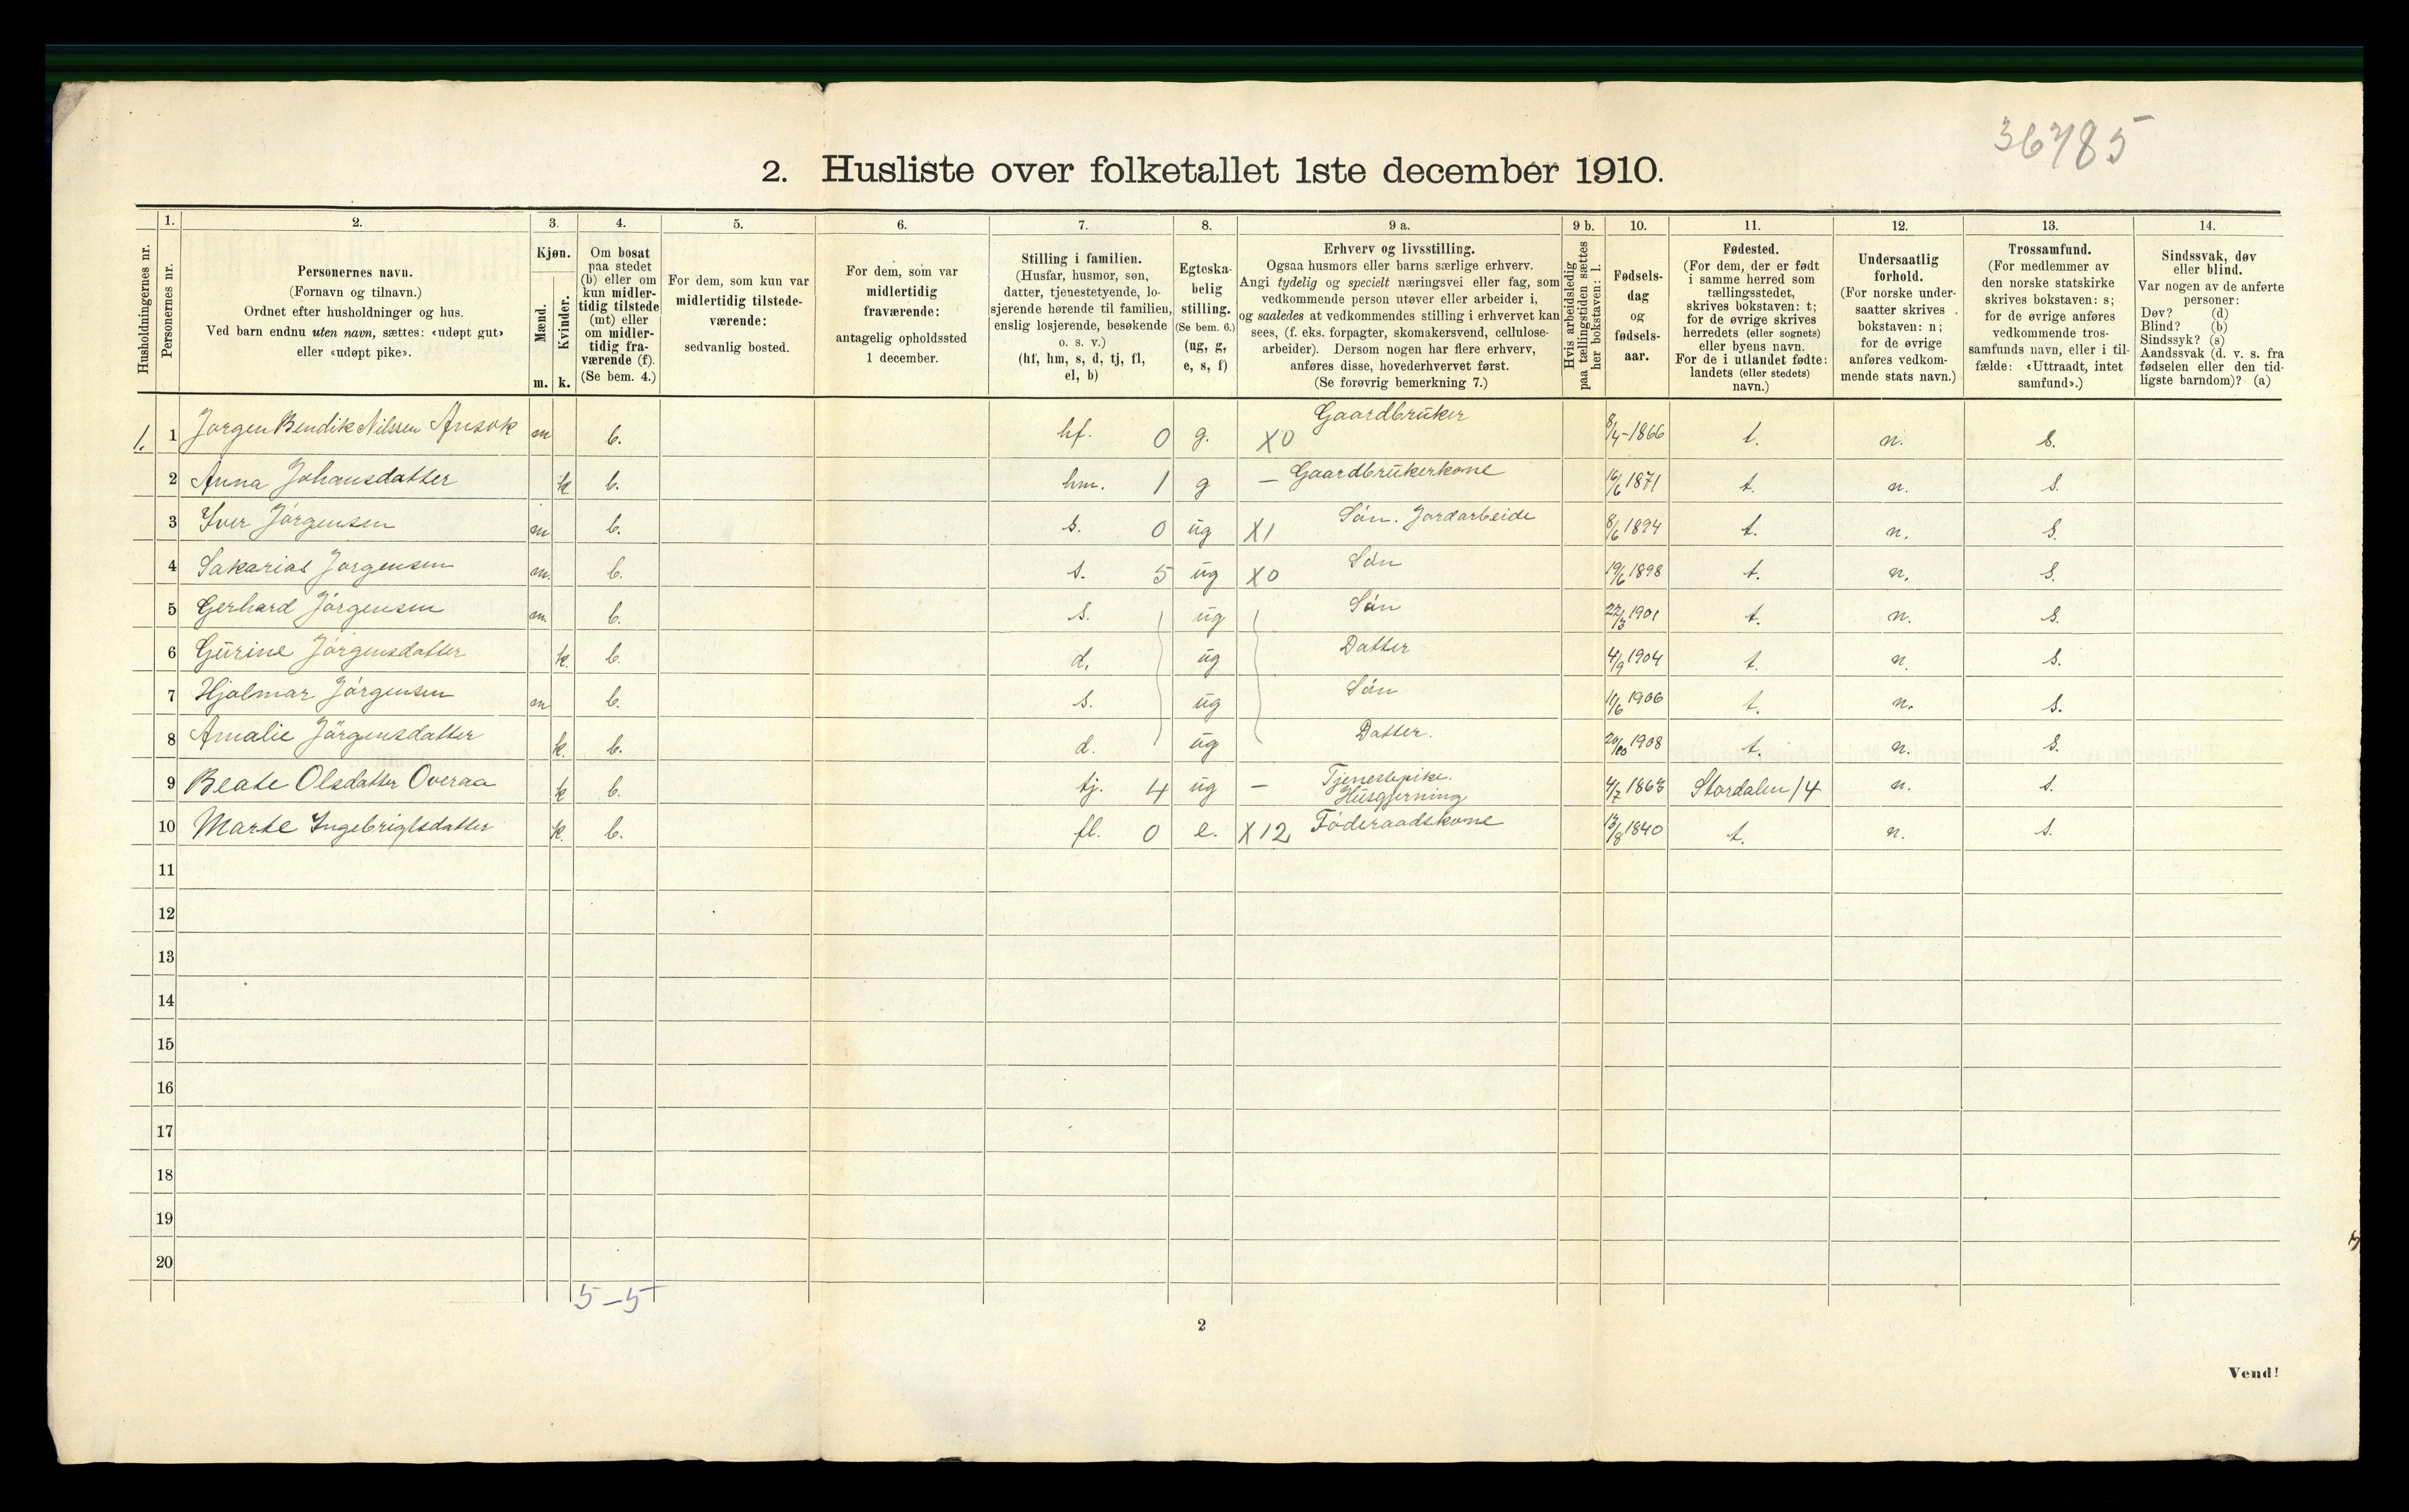 36785
2. Husliste over folketallet 1ste december 1910.
Husholdningernes nr.
1.
Personernes nr.
2.
Personernes navn.
(Fornavn og tilnavn.)
Ordnet efter husholdninger og hus.
Ved barn endnu uten navn, sættes: «udøpt gut»
eller «udøpt pike».
3.
Kjøn.
Mænd.
Kvinder.
m. k.
4.
Om bosat
paa stedet
(b) eller om
kun midler-
tidig tilstede
(mt) eller
om midler-
tidig fra-
værende (f).
(Se bem. 4.)
5.
For dem, som kun var
midlertidig tilstede-
værende:
sedvanlig bosted.
6.
For dem, som var
midlertidig
fraværende:
antagelig opholdssted
1 december.
7.
Stilling i familien.
(Husfar, husmor, søn,
datter, tjenestetyende, lo-
sjerende hørende til familien,
enslig losjerende, besøkende
o. s. v.)
(hf, hm, s, d, tj, fl,
el, b)
8.
Egteska-
belig
stilling.
(Se bem. 6.)
(ug, g,
e, s, f)
9 a.
Erhverv og livsstilling.
Ogsaa husmors eller barns særlige erhverv.
Angi tydelig og specielt næringsvei eller fag, som
vedkommende person utøver eller arbeider i,
og saaledes at vedkommendes stilling i erhvervet kan
sees, (f. eks. forpagter, skomakersvend, cellulose-
arbeider). Dersom nogen har flere erhverv,
anføres disse, hovederhvervet først.
(Se forøvrig bemerkning 7.)
9 b.
Hvis arbeidsledig
paa tællingstiden sættes
her bokstaven: l.
10.
Fødsels-
dag
og
fødsels-
aar.
11.
Fødested.
(For dem, der er født
i samme herred som
tællingsstedet,
skrives bokstaven: t;
for de øvrige skrives
herredets (eller sognets)
eller byens navn.
For de i utlandet fødte:
landets (eller stedets)
navn.)
12.
Undersaatlig
forhold.
(For norske under-
saatter skrives
bokstaven: n;
for de øvrige
anføres vedkom-
mende stats navn.)
13.
Trossamfund.
(For medlemmer av
den norske statskirke
skrives bokstaven: s;
for de øvrige anføres
vedkommende tros-
samfunds navn, eller i til-
fælde: «Uttraadt, intet
samfund».)
14.
Sindssvak, døv
eller blind.
Var nogen av de anførte
personer:
Døv? (d)
Blind? (b)
Sindssyk? (s)
Aandssvak (d. v. s. fra
fødselen eller den tid-
ligste barndom)? (a)
1. 1 Jørgen Bendik Nilssen Ansok m b. hf. 0 g. X0 Gaardbruker 8/4-1866 t. n. s.
2 Anna Johansdatter k. b. hm. 1 g — Gaardbrukerkone 16/6 1871 t. n. s.
3 Iver Jørgensen m b. s. 0 ug X1 Søn. Jordarbeide 8/6 1894 t. n. s.
4 Sakarias Jørgensen m. b. s. 5 ug X0 Søn 19/6 1898 t. n. s.
5 Gerhard Jørgensen m. b. s. ug Søn 22/3 1901 t. n. s.
6 Gurine Jørgensdatter k. b. d. ug Datter 4/9 1904 t. n. s.
7 Hjalmar Jørgensen m b. s. ug Søn 11/6 1906 t. n. s.
8 Amalie Jørgensdatter k. b. d. ug Datter. 20/10 1908 t. n. s.
9 Beate Olsdatter Overaa k b. tj. 4 ug — Tjenestepike. Husgjerning 4/7 1863 Stordalen 14 n. s.
10 Marte Ingebrigtsdatter k. b. fl. 0 e. X12 Føderaadskone 13/8 1840 t. n. s.
11
12
13
14
15
16
17
18
19
20
5-5
2
Vend!